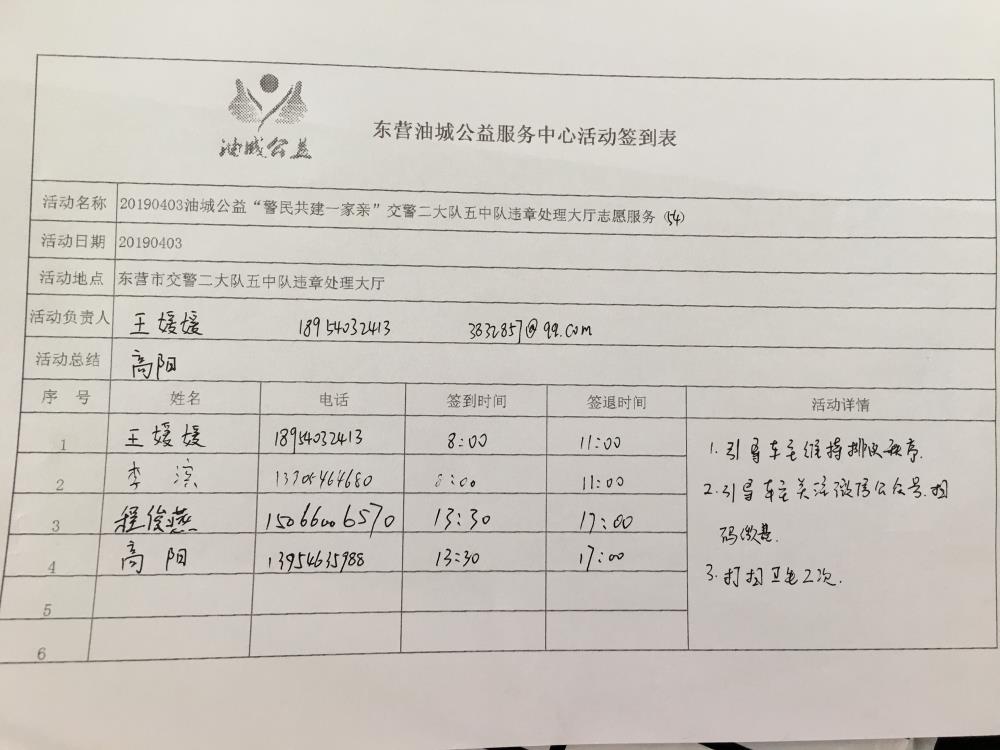 油城公益
东营油城公益服务中心活动签到表
活动名称 20190403油城公益“警民共建一家亲”交警二大队五中队违章处理大厅志愿服务(54)
活动日期 20190403
活动地点 东营市交警二大队五中队违章处理大厅
活动负责人 王媛媛 18954032413 3832857@qq.com
活动总结 高阳
序号 姓名 电话 签到时间 签退时间 活动详情
1 王媛媛 18954032413 8:00 11:00 1.引导车主维持排队秩序.
2 李滨 13305464680 8:00 11:00 2.引导车主关注微信公众号.扫
3 程俊燕 15066006570 13:30 17:00 码缴费.
4 高阳 13954635988 13:30 17:00 3.打扫卫生2次.
5
6